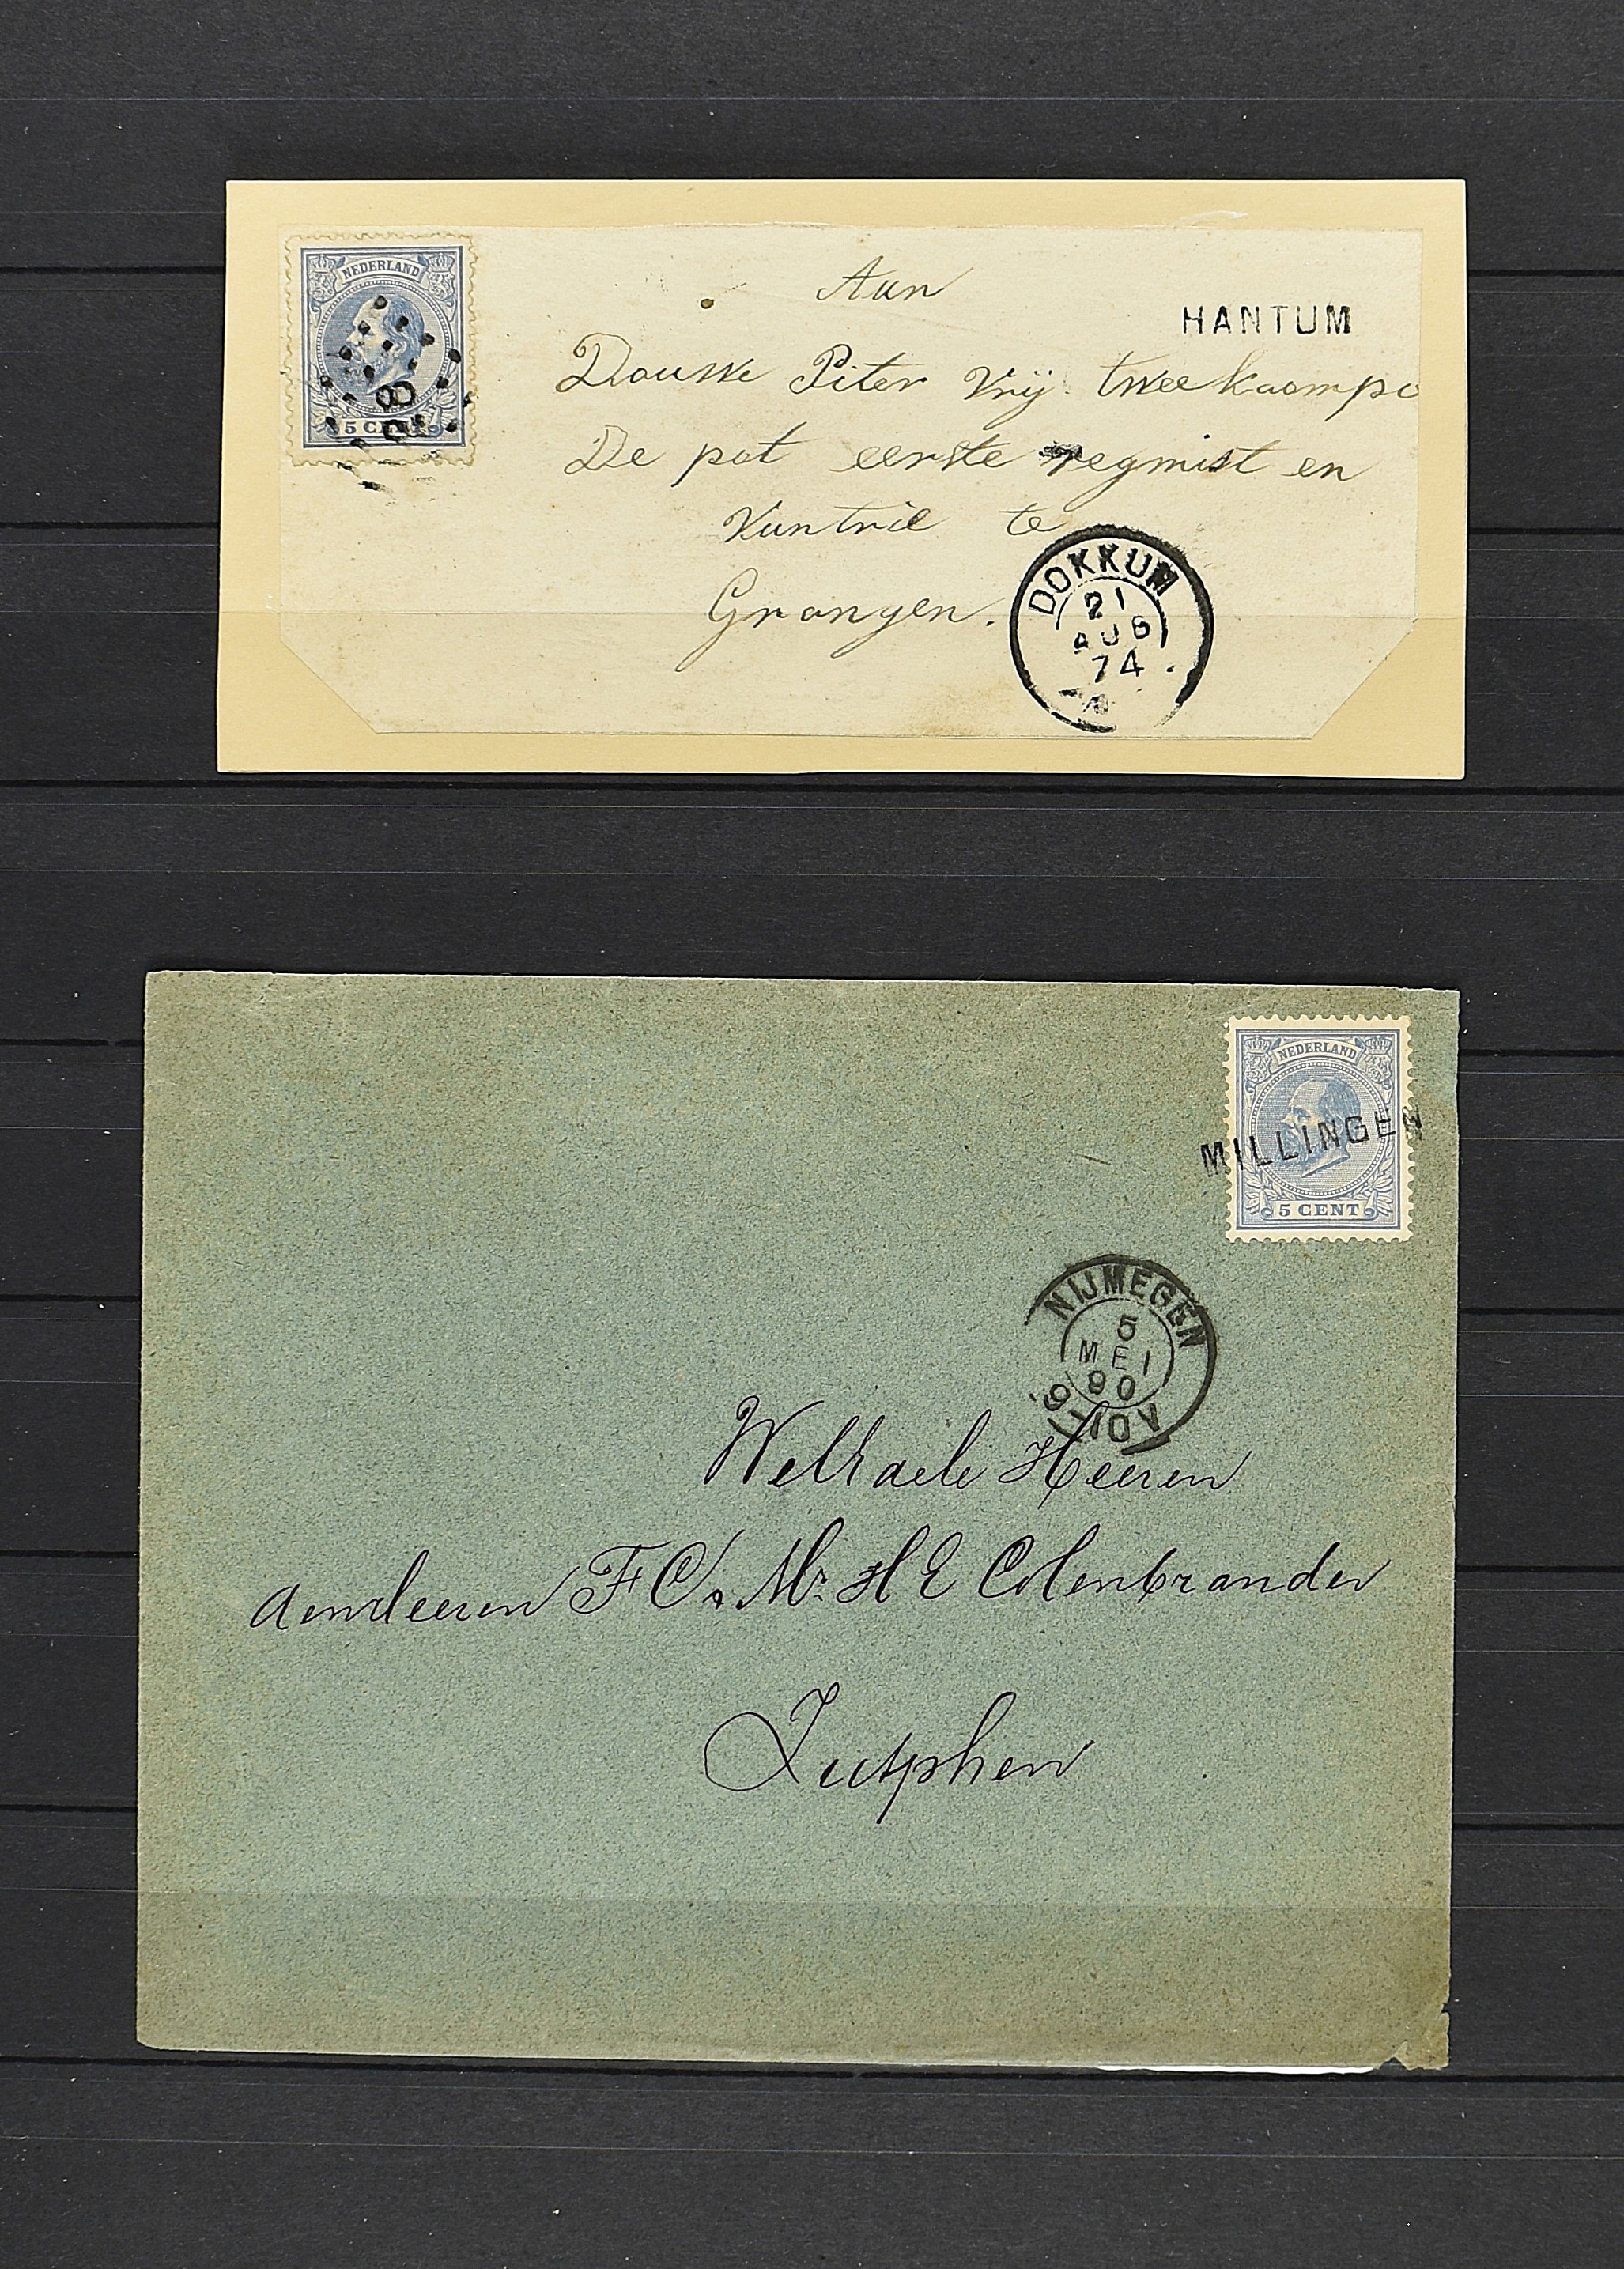 NEDERLAND
5 CENT
Aan
HANTUM
Douwe Piter Vrij twee kaompc
De pot eerste regmist en
Vantrie te
Grongen.
DOKKUM
21
AUG
74
NEDERLAND
MILLINGEN
5 CENT
NIJMEGEN
5
MEI
90
9-10V
Heeren
F C. Mr. H E Colenbrander
Zutphen